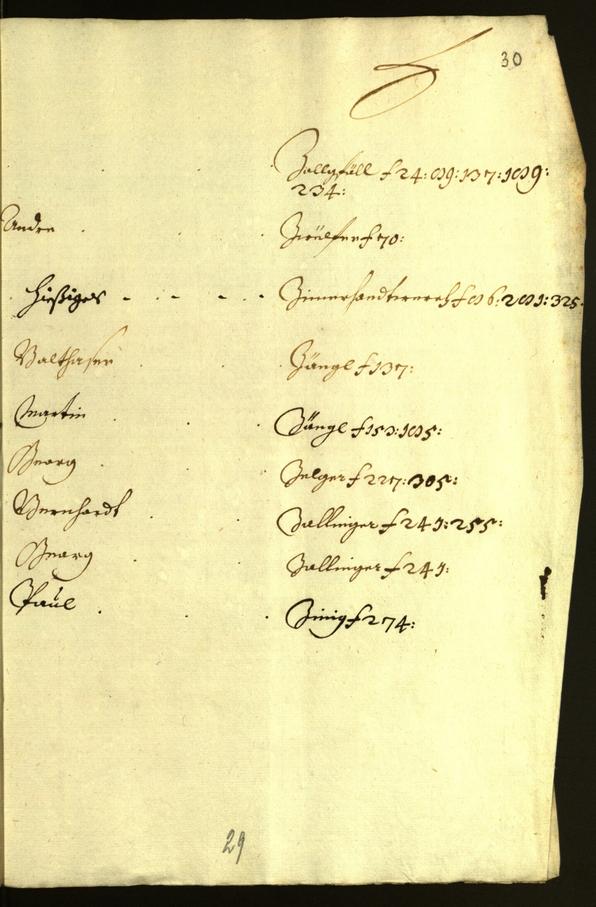 Z
30
Zollgfäll f 24: 89: 137: 189:
234:
Andre Zwülfer f 70:
Hießiges Zimerhandtwerch f 86: 281: 325
Balthaser Zängl f 137:
Martin Zängl f 153: 185:
Georg Zelger f 227: 305:
Bernhardt Zallinger f 241: 255:
Georg Zallinger f 241:
Paul Zinig f 274:
29